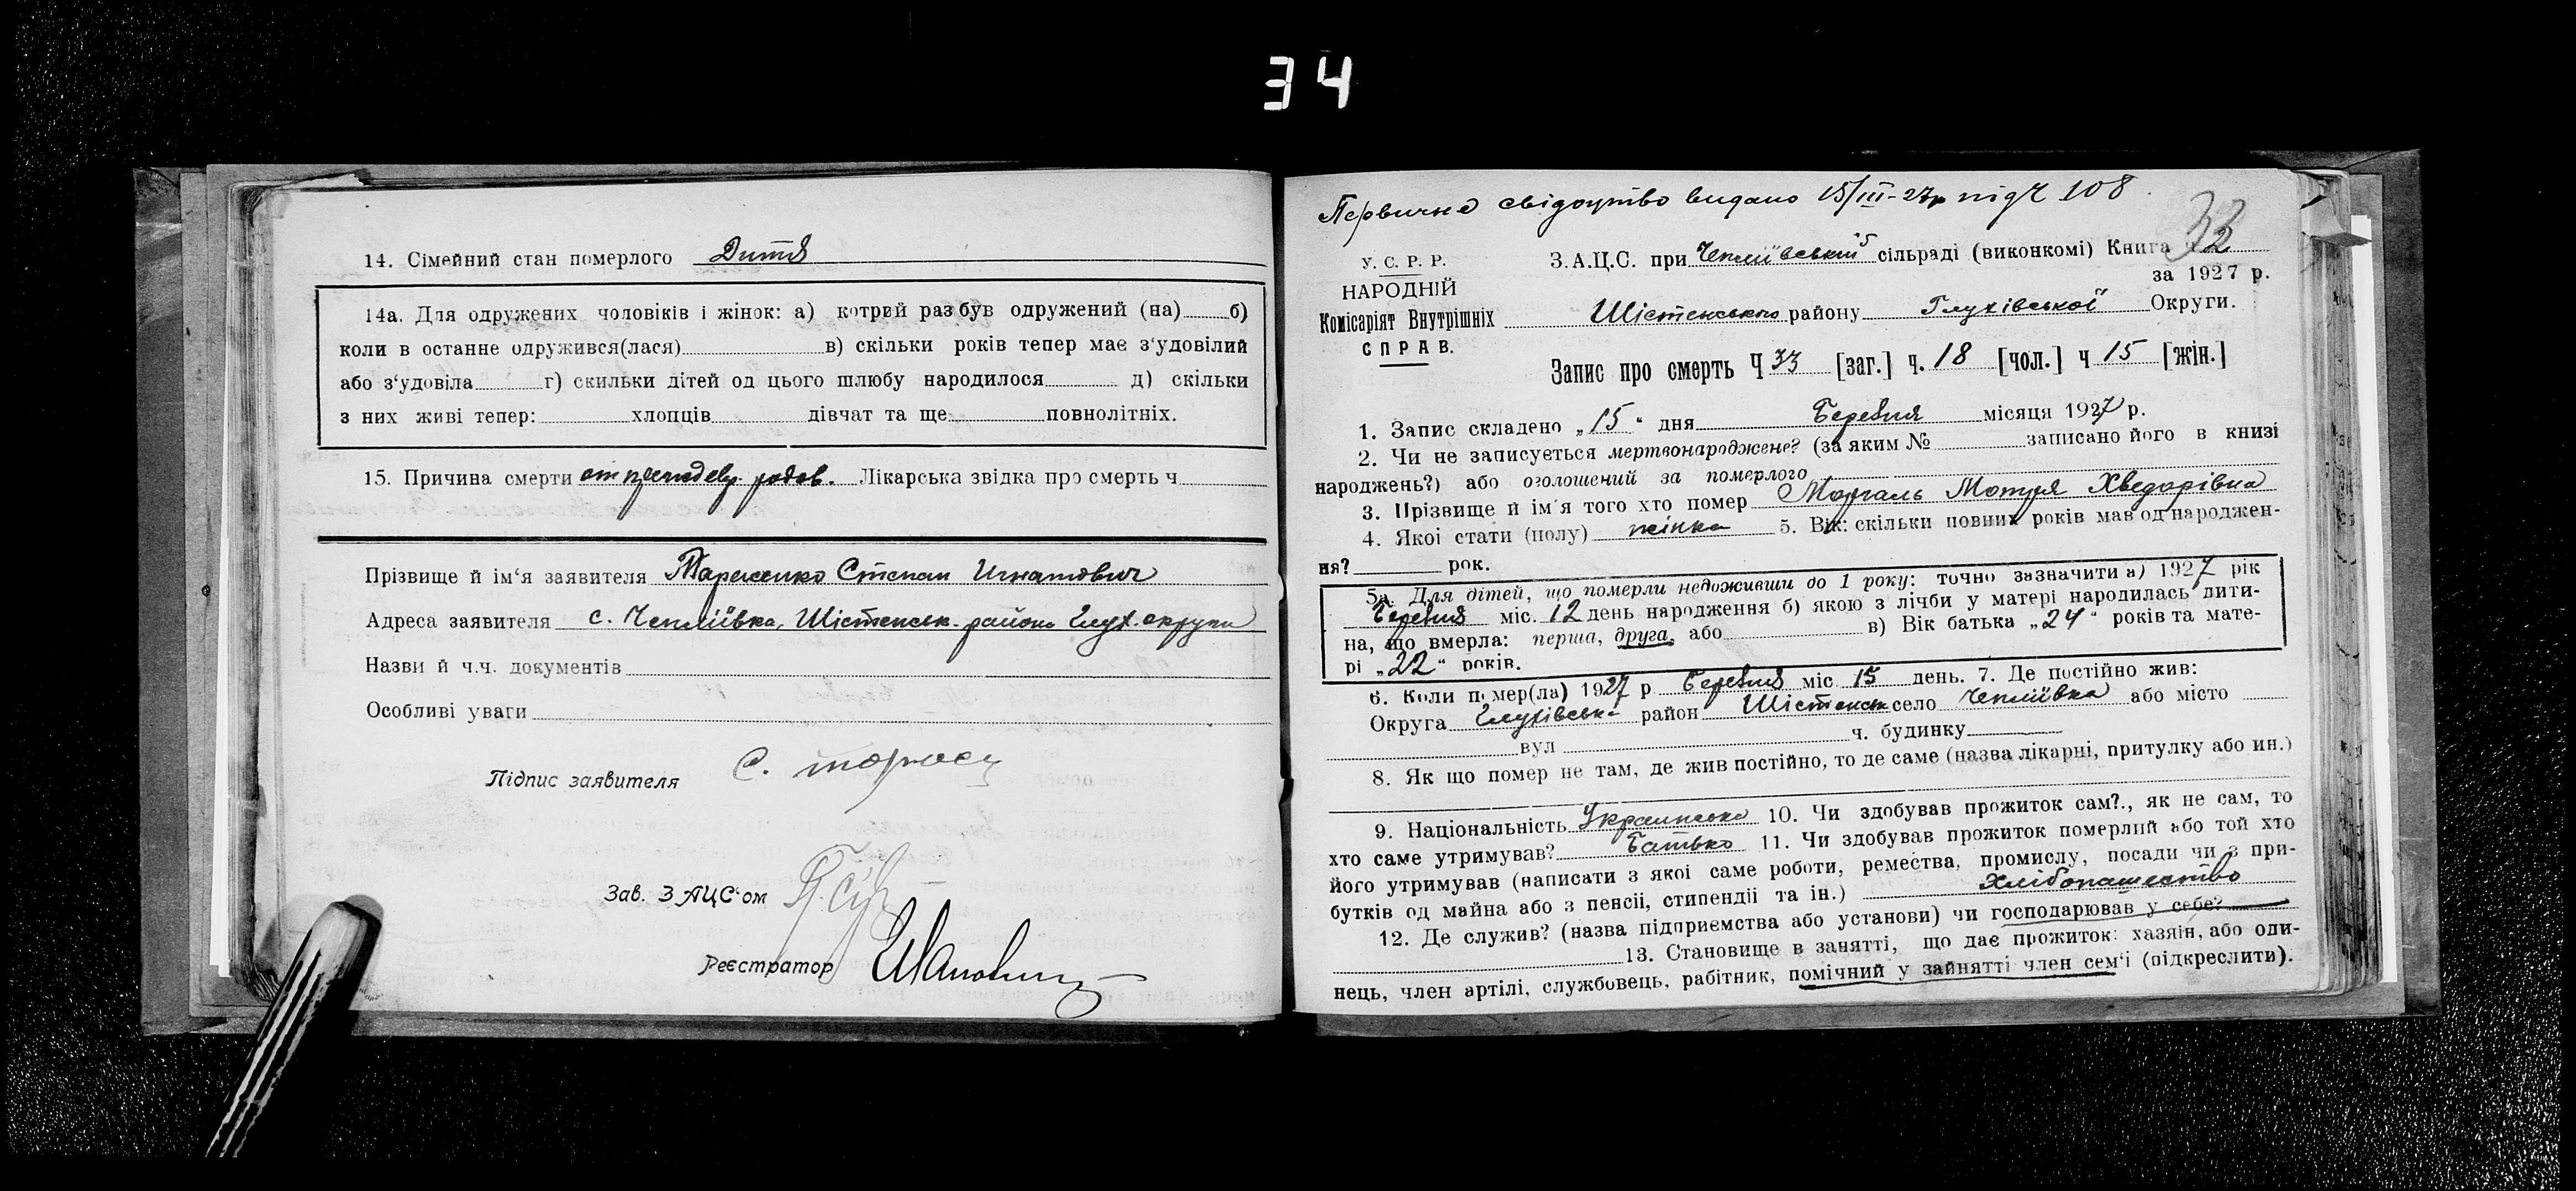 34
14. Сімейний стан померлого Дитя
14а. Для одружених чоловіків і жінок: а) котрий раз був одружений (на) б)
коли в останне одружився(лася) в) скільки років тепер має з‘удовілий
або з‘удовіла г) скильки дітей од цього шлюбу народилося д) скільки
з них живі тепер: хлопців дівчат та ще повнолітніх.
15. Причина смерти от родов. Лікарська звідка про смерть ч
Прізвище й ім‘я заявителя Тарасенко Степан Игнатович
Адреса заявителя с. Чепліївка, Шістенськ. района Глух. округи
Назви й ч.ч. документів
Особливі уваги
Підпис заявителя С.
Зав. ЗАЦС‘ом
Реєстратор
Первичне свідоцтво видано 15/III-27р під Ч 108
32
У. С. Р. Р.
НАРОДНІЙ
Комісаріят Внутрішніх
СПРАВ.
З.А.Ц.С. при Чепліївський сільраді (виконкомі) Книга
за 1927 р.
Шістенського району Глухівської Округи.
Запис про смерть Ч 33 [заг.] ч. 18 [чол.] ч 15 [жін.]
1. Запис складено „15“ дня Березня місяця 1927 р.
2. Чи не записується мертвонароджене? (за яким № записано його в книзі
народжень?) або оголошений за померлого
3. Прізвище й ім‘я того хто помер Моргаль Мотря Хведорівна
4. Якоі стати (полу) жінка 5. Вік: скільки повних років мав од народжен-
ня? рок.
5а. Для дітей, що померли недоживши до 1 року: точно зазначити а) 1927 рік
Березня міс. 12 день народження б) якою з лічби у матері народилась дити-
на, що вмерла: перша, друга, або в) Вік батька „24“ років та мате-
рі „22“ років.
6. Коли помер(ла) 1927 р Березня міс 15 день. 7. Де постійно жив:
Округа Глухівська район Шістенськ село Чепліївка або місто
вул ч. будинку
8. Як що помер не там, де жив постійно, то де саме (назва лікарні, притулку або ин.)
9. Національність Украинська 10. Чи здобував прожиток сам?., як не сам, то
хто саме утримував? Батько 11. Чи здобував прожиток померлий або той хто
його утримував (написати з якоі саме роботи, ремества, промислу, посади чи з при-
бутків од майна або з пенсіі, стипендіі та ін.) Хлібопашество
12. Де служив? (назва підприемства або установи) чи господарював у себе?
13. Становище в занятті, що дає прожиток: хазяін, або оди-
нець, член артілі, службовець, рабітник, помічний у зайнятті член сем‘і (підкреслити).